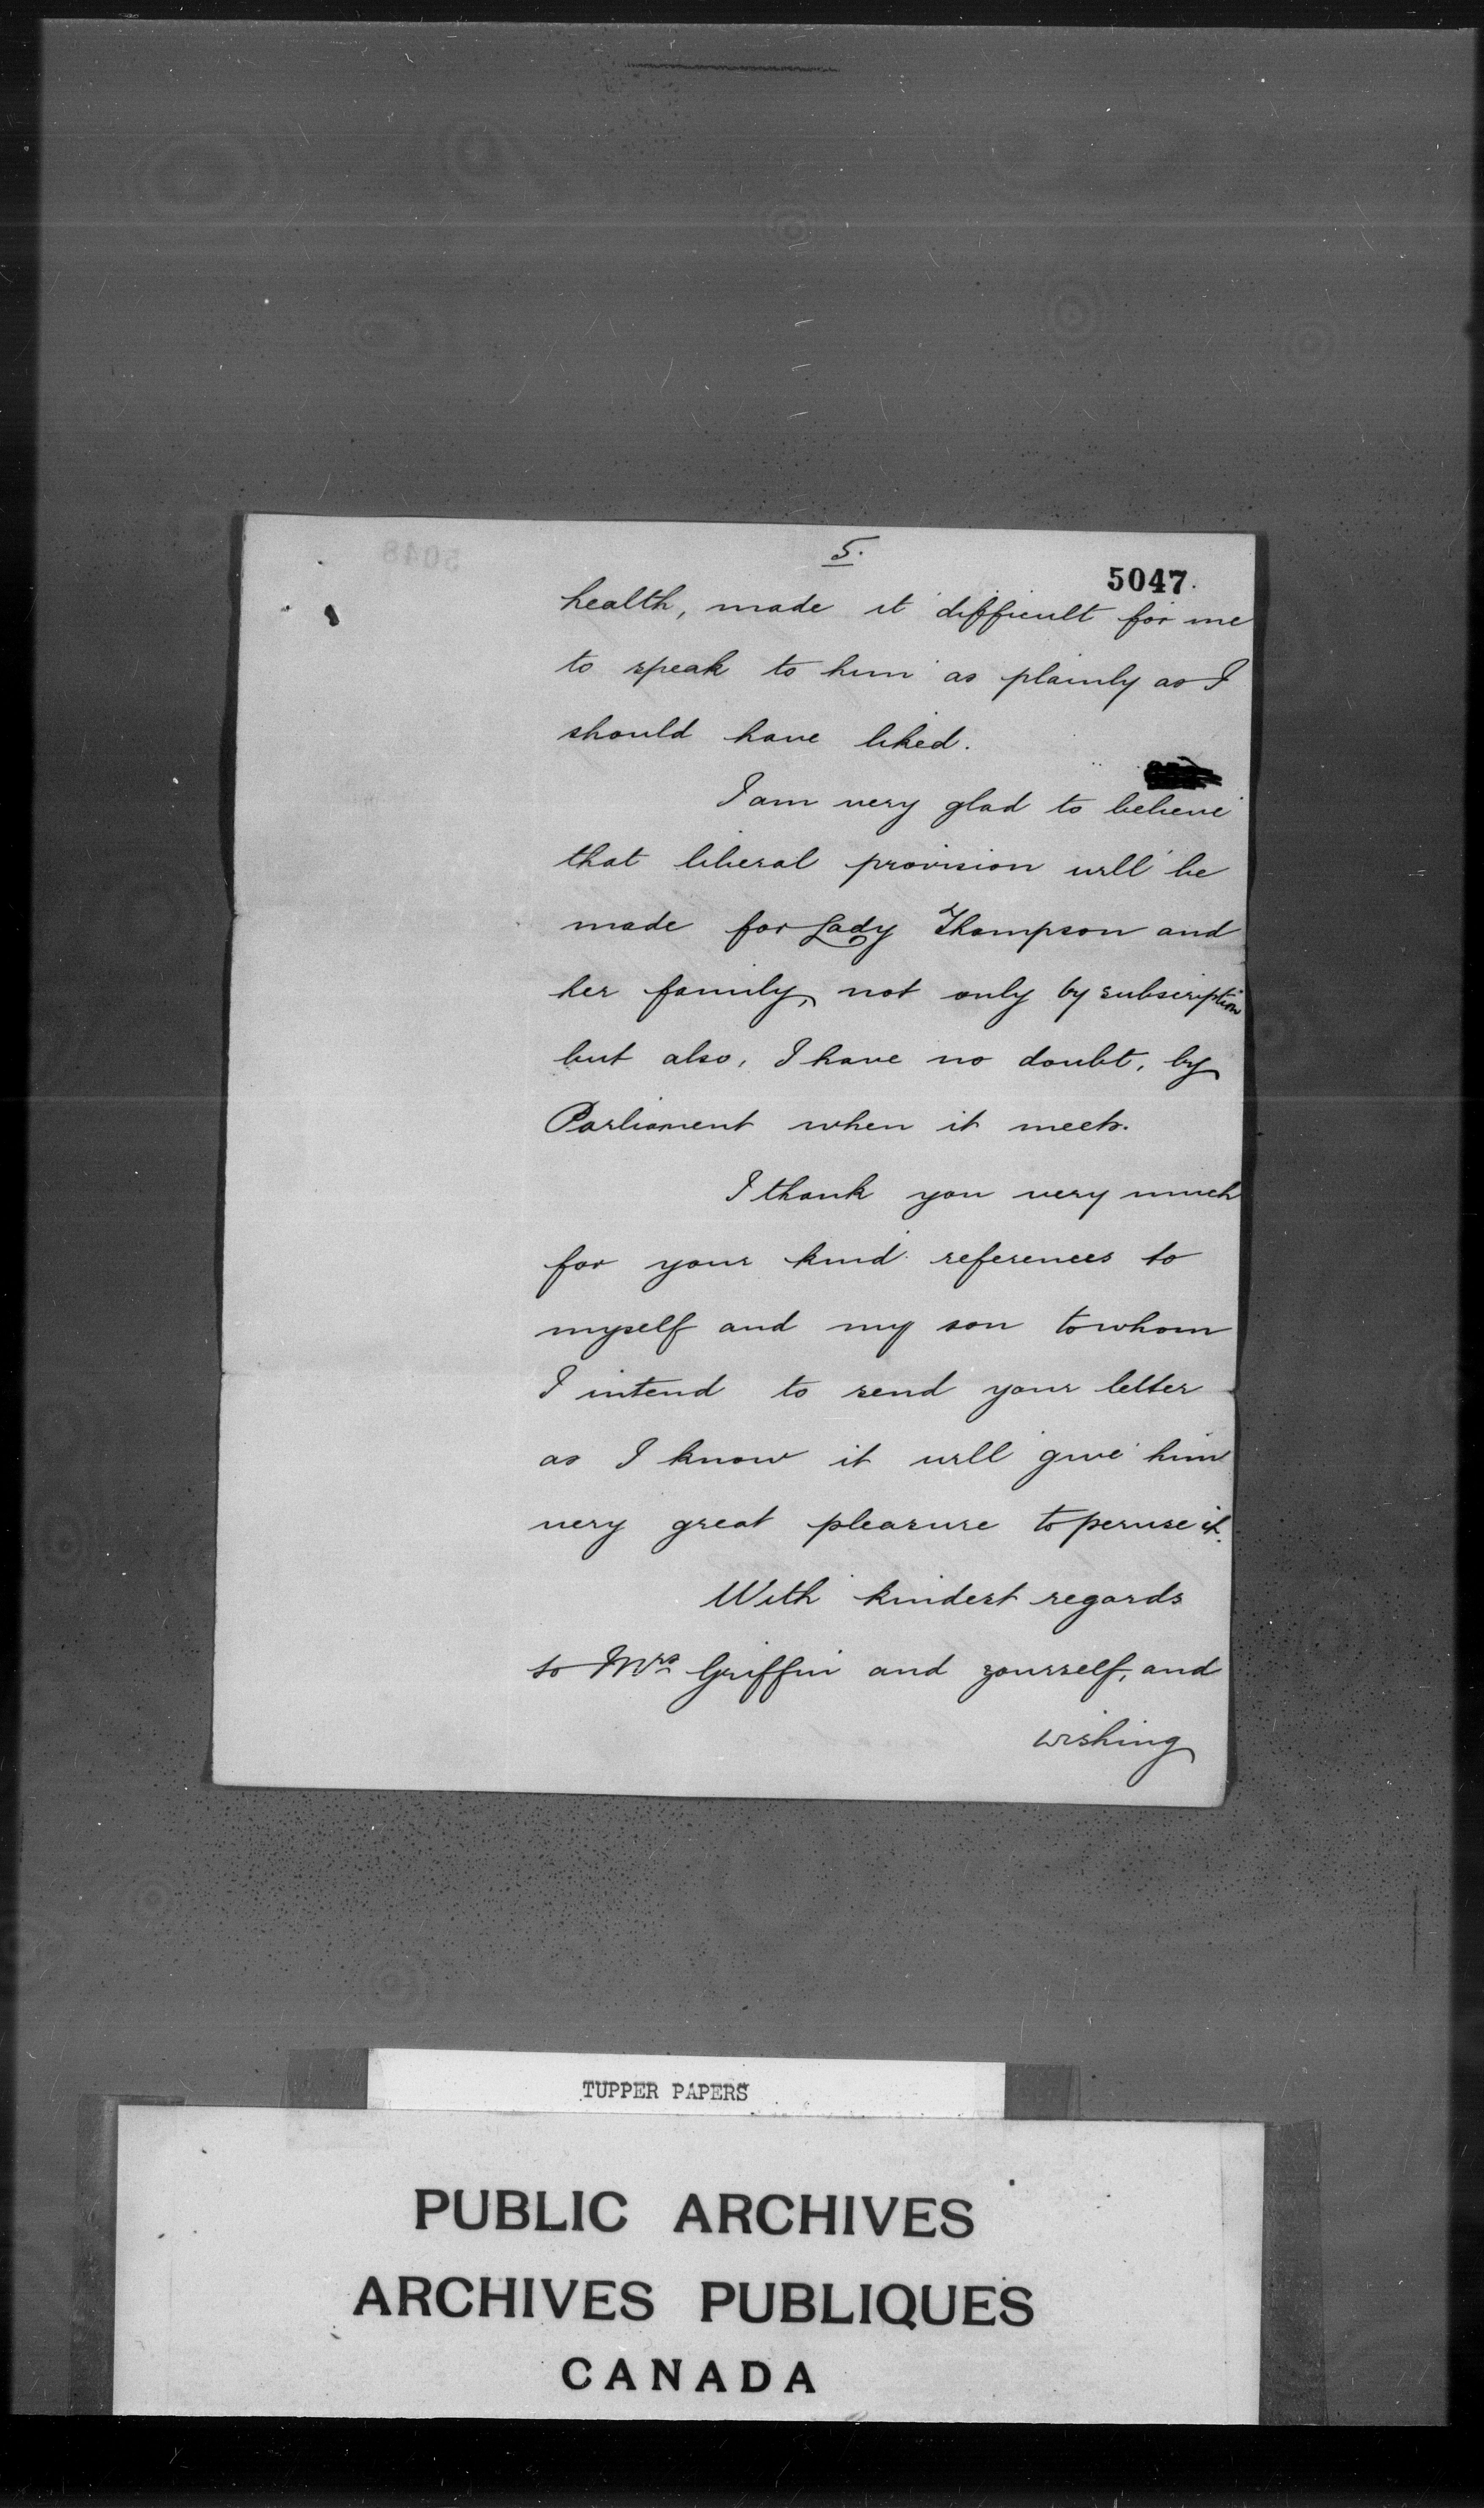 5.
5047.
health, made it difficult for me
to speak to him as plainly as I
should have liked.
I am very glad to believe
that liberal provision will be
made for Lady Thompson and
her family, not only by subscription
but also, I have no doubt, by
Parliament when it meets.
I thank you very much
for your kind references to
myself and my son to whom
I intend to send your letter
as I know it will give him
very great pleasure to peruse it.
With kindest regards
to Mrs Griffin and yourself, and
wishing
TUPPER PAPERS
PUBLIC ARCHIVES
ARCHIVES PUBLIQUES
CANADA